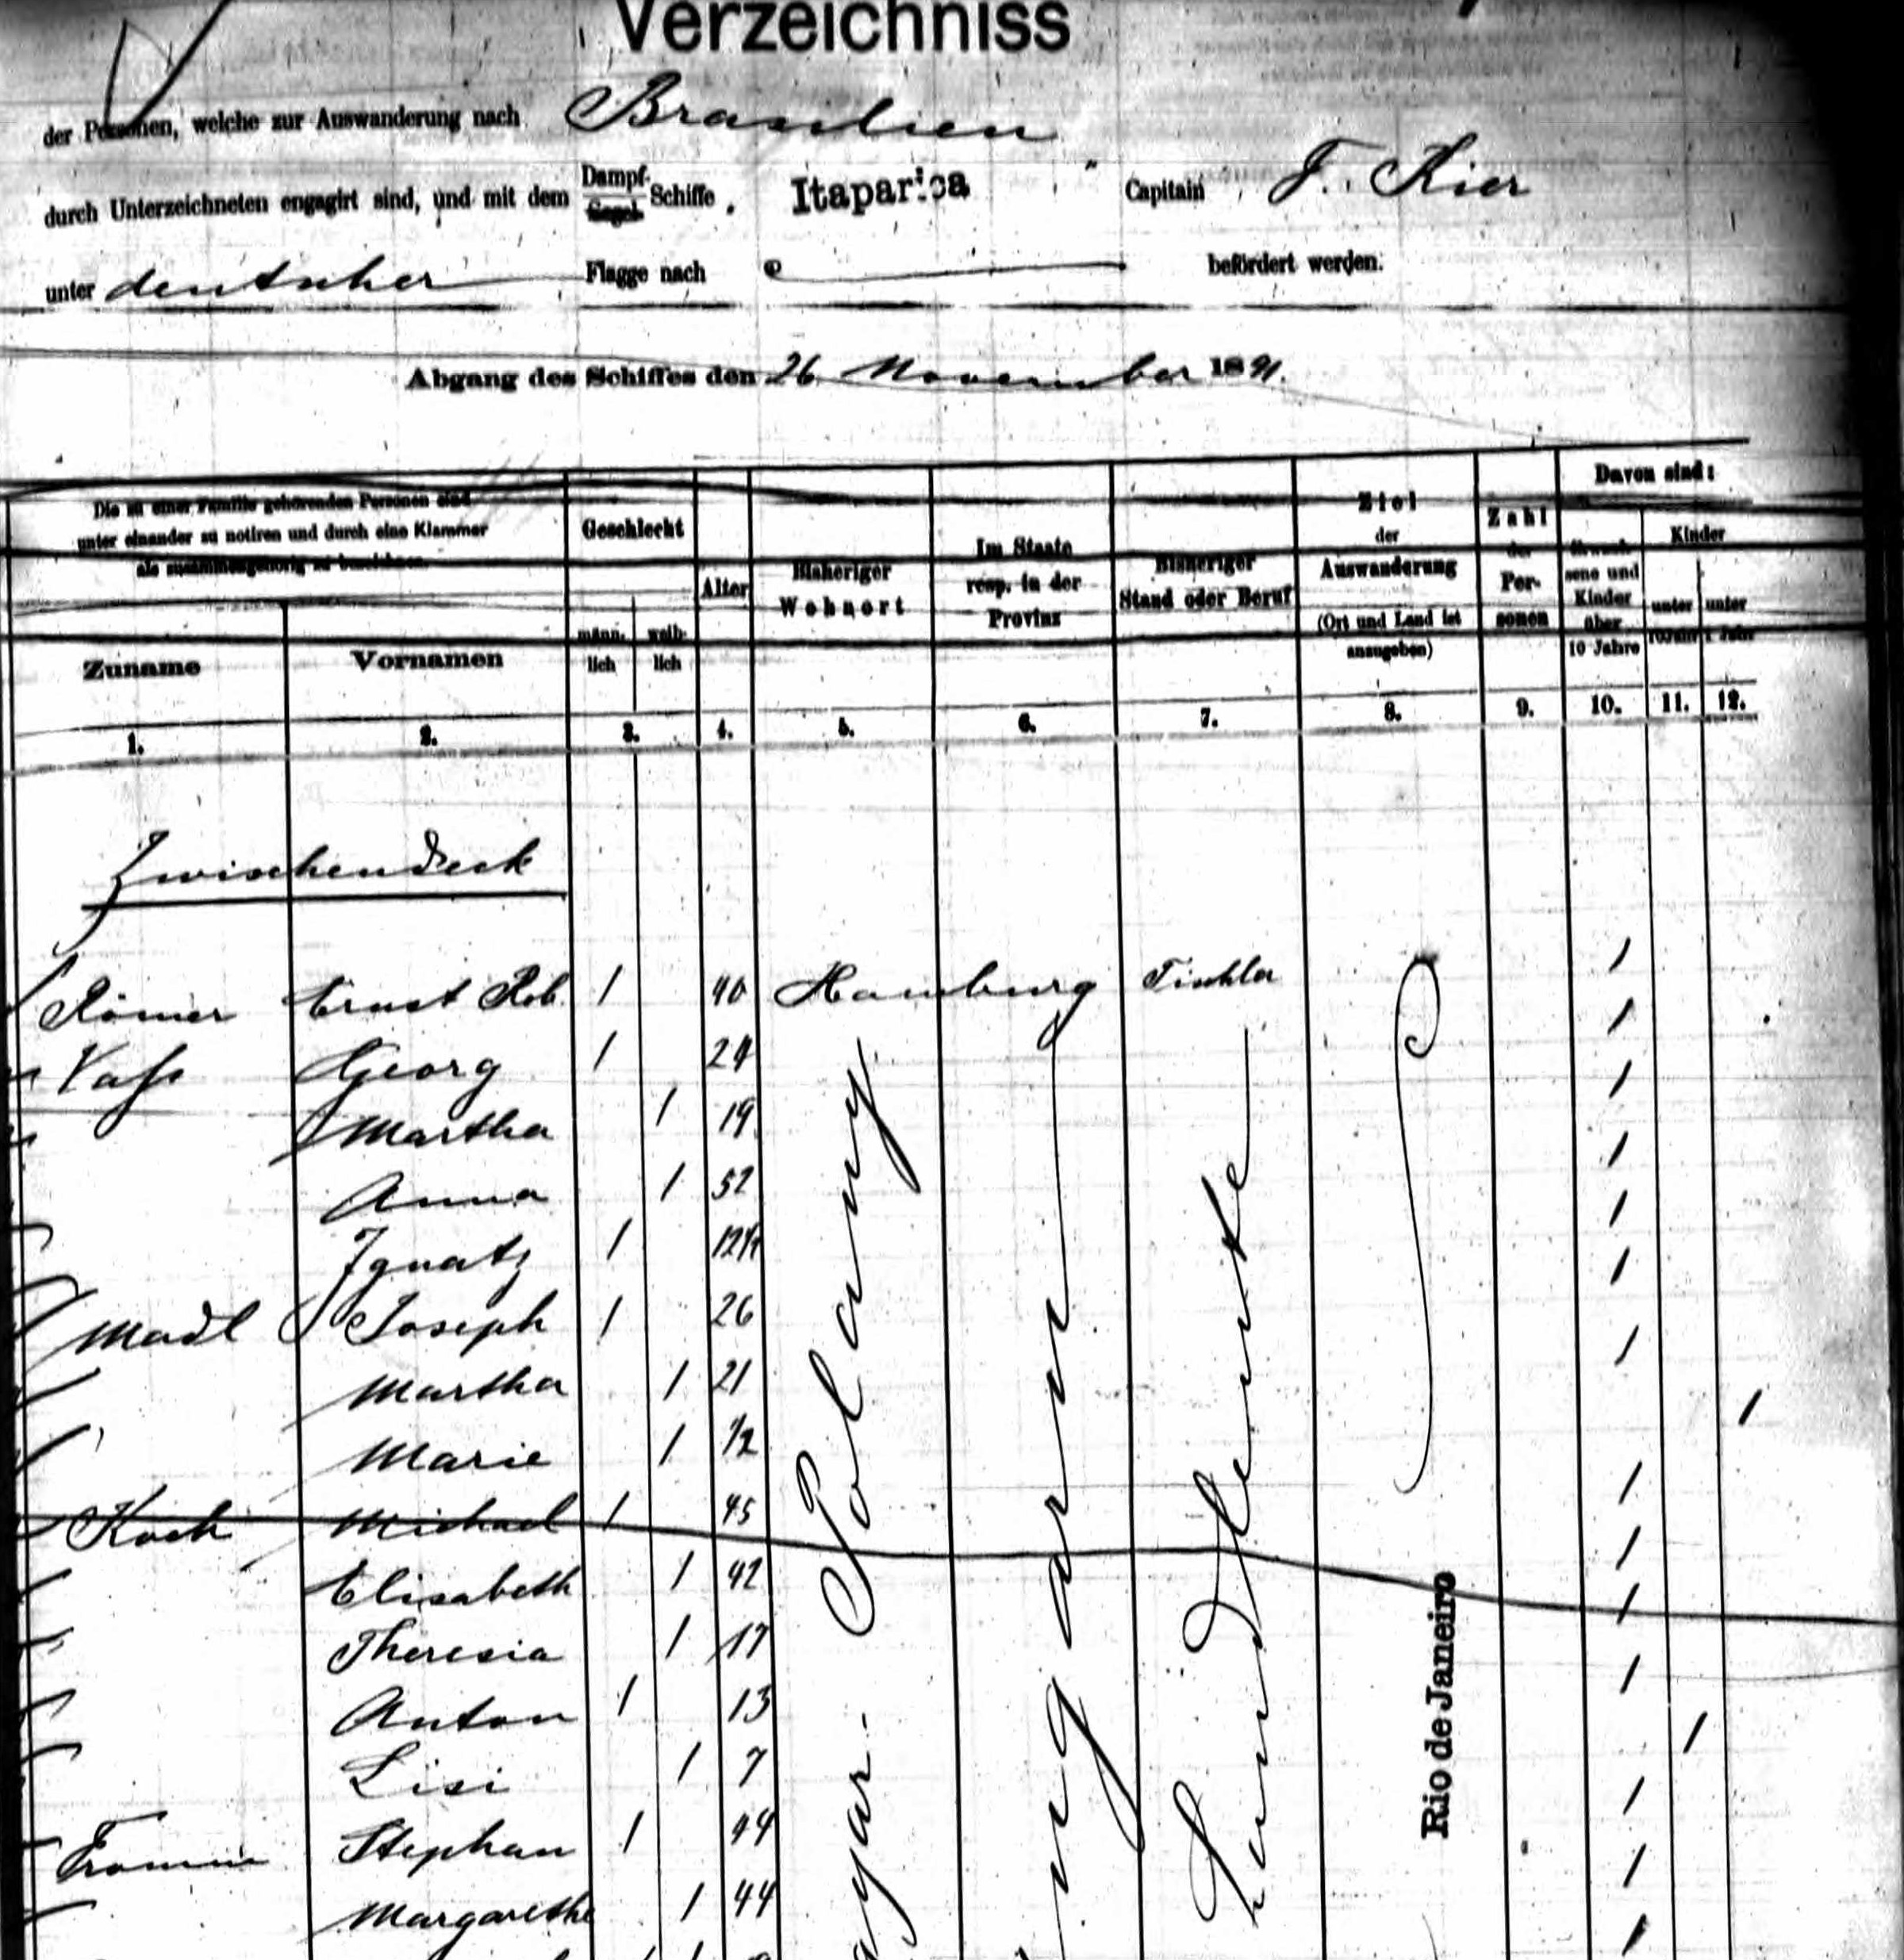 Verzeichniss
der Personen, welche zur Auswanderung nach Brasilien
durch Unterzeichneten engagirt sind, und mit dem Dampf- Segel- Schiffe Itaparica Capitain F. Kier
unter deutscher Flagge nach befördert werden.
Abgang des Schiffes den 26 November 1891.
Die zu einer Familie gehörenden Personen sind
unter einander zu notiren und durch eine Klammer
als zusammengehörig zu bezeichnen.
Zuname
Vornamen
Geschlecht
männ-
lich
weib-
lich
Alter
Bisheriger
Wohnort
Im Staate
resp. in der
Provinz
Bisheriger
Stand oder Beruf
Ziel
der
Auswanderung
(Ort und Land ist
anzugeben)
Zahl
der
Per-
sonen
Davon sind:
Erwach-
sene und
Kinder
über
10 Jahre
Kinder
unter
10 Jahr
unter
1 Jahr
1. 2. 3. 4. 5. 6. 7. 8. 9. 10. 11. 12.
Zwischendeck
Römer Ernst Rob. 1 40 Hamburg Tischler 1
Vass Georg 1 24 1
Martha 1 19 1
Anna 1 52 1
Ignatz 1 1
Madl Joseph 1 26 1
Martha 1 21 1
Marie 1 1/2 1
Koch Michael 1 45 1
Elisabeth 1 42 1
Theresia 1 17 1
Anton 1 13 1
Lisi 1 7 1
Fromm Stephan 1 44 1
Margarethe 1 44 1
Polany
Ungarn
Landleute
Rio de Janeiro